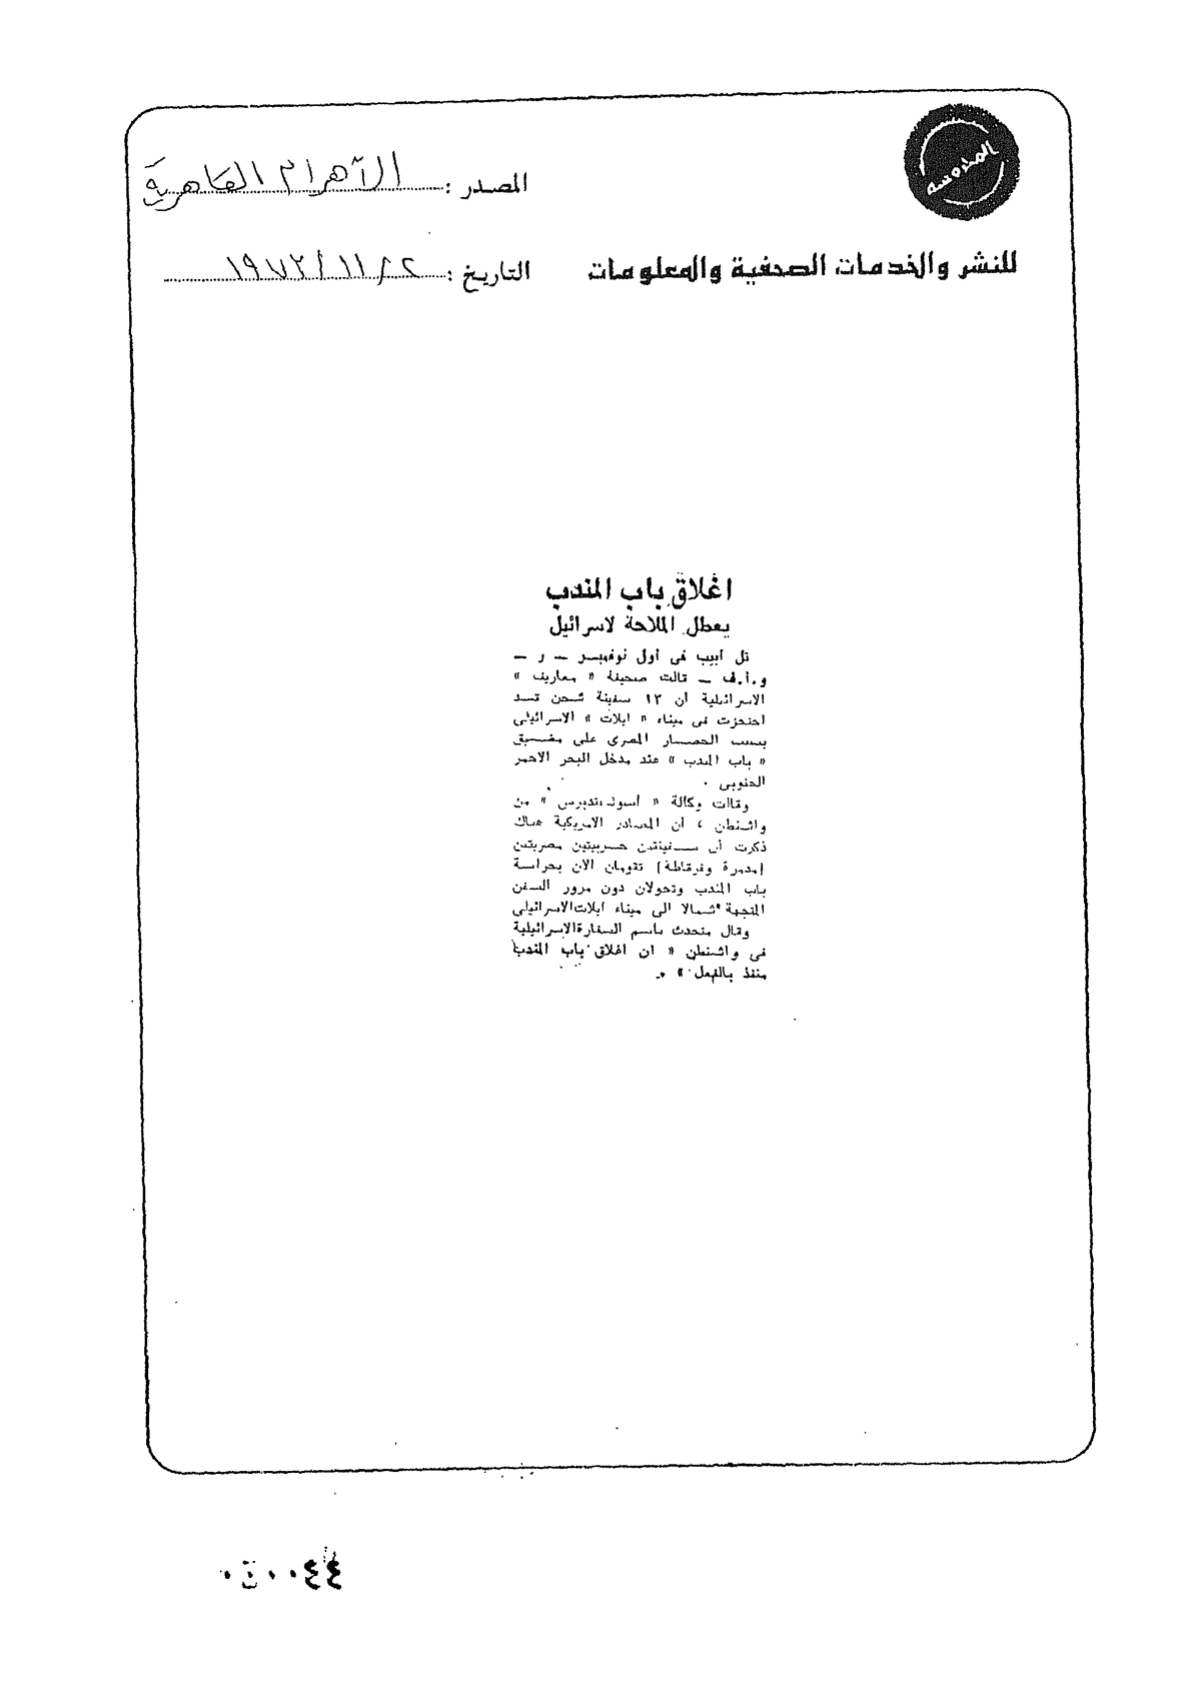 المحروسة
المصدر : الآهرام القاهرية
للنشر والخدمات الصحفية والمعلومات
التاريخ : ٢ / ١١ / ١٩٧٣
اغلاق باب المندب
يعطل الملاحة لاسرائيل
تل ابيب فى أول نوفمبر – ر –
و.أ.ف – قالت صحيفة « معاريف »
الاسرائيلية أن ١٣ سفينة شحن تسد
احتجزت فى ميناء « ايلات » الاسرائيلى
بسبب الحصار المصرى على مضيق
« باب المندب » عند مدخل البحر الاحمر
الجنوبى .
وقالت وكالة « أسوشيتدبرس » من
واشنطن ، أن المصادر الامريكية هناك
ذكرت أن سفينتين حربيتين مصريتين
(مدمرة وفرقاطة) تقومان الآن بحراسة
باب المندب وتحولان دون مرور السفن
المتجهة شمالا الى ميناء ايلات الاسرائيلى
وقال متحدث باسم السفارة الاسرائيلية
فى واشنطن « ان اغلاق باب المندب
منفذ بالفعل » .
٤٤